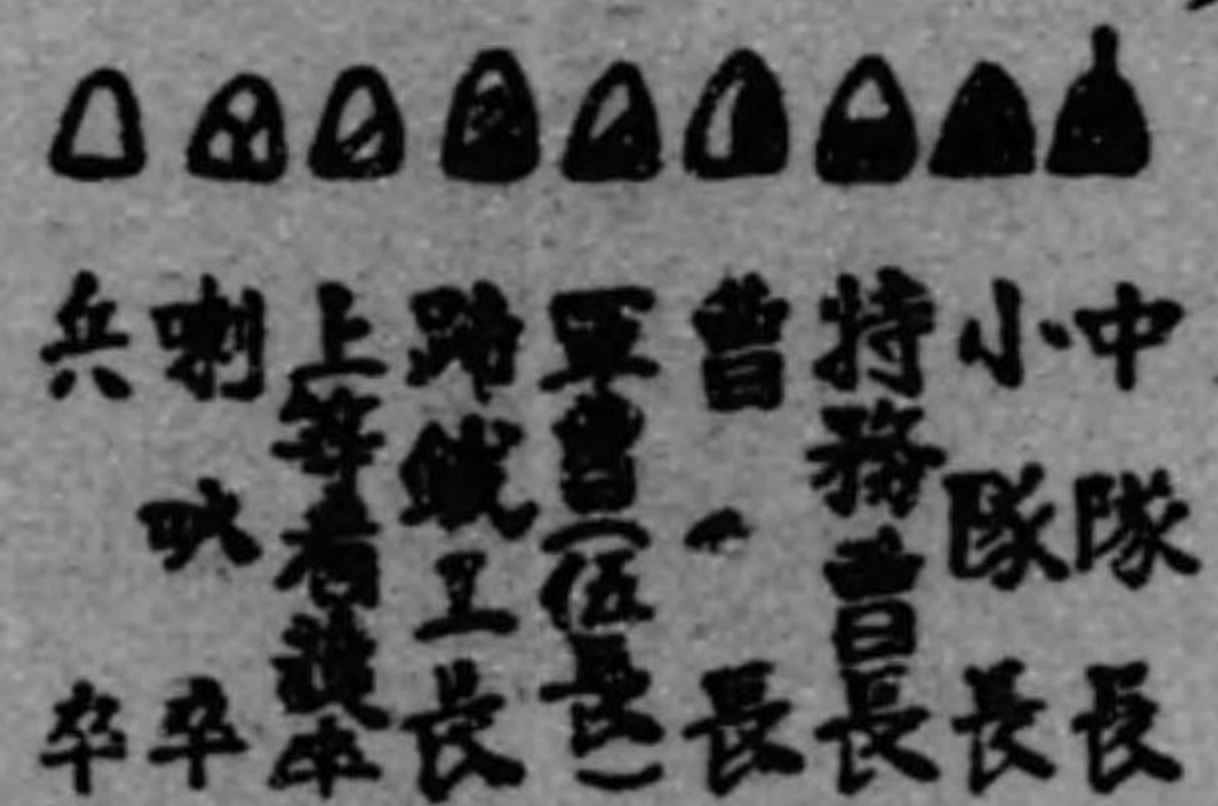 中隊長
小隊長
特務曹長
曹長
軍曹(伍長)
蹄鐵工長
上等看護卒
喇叭卒
兵卒